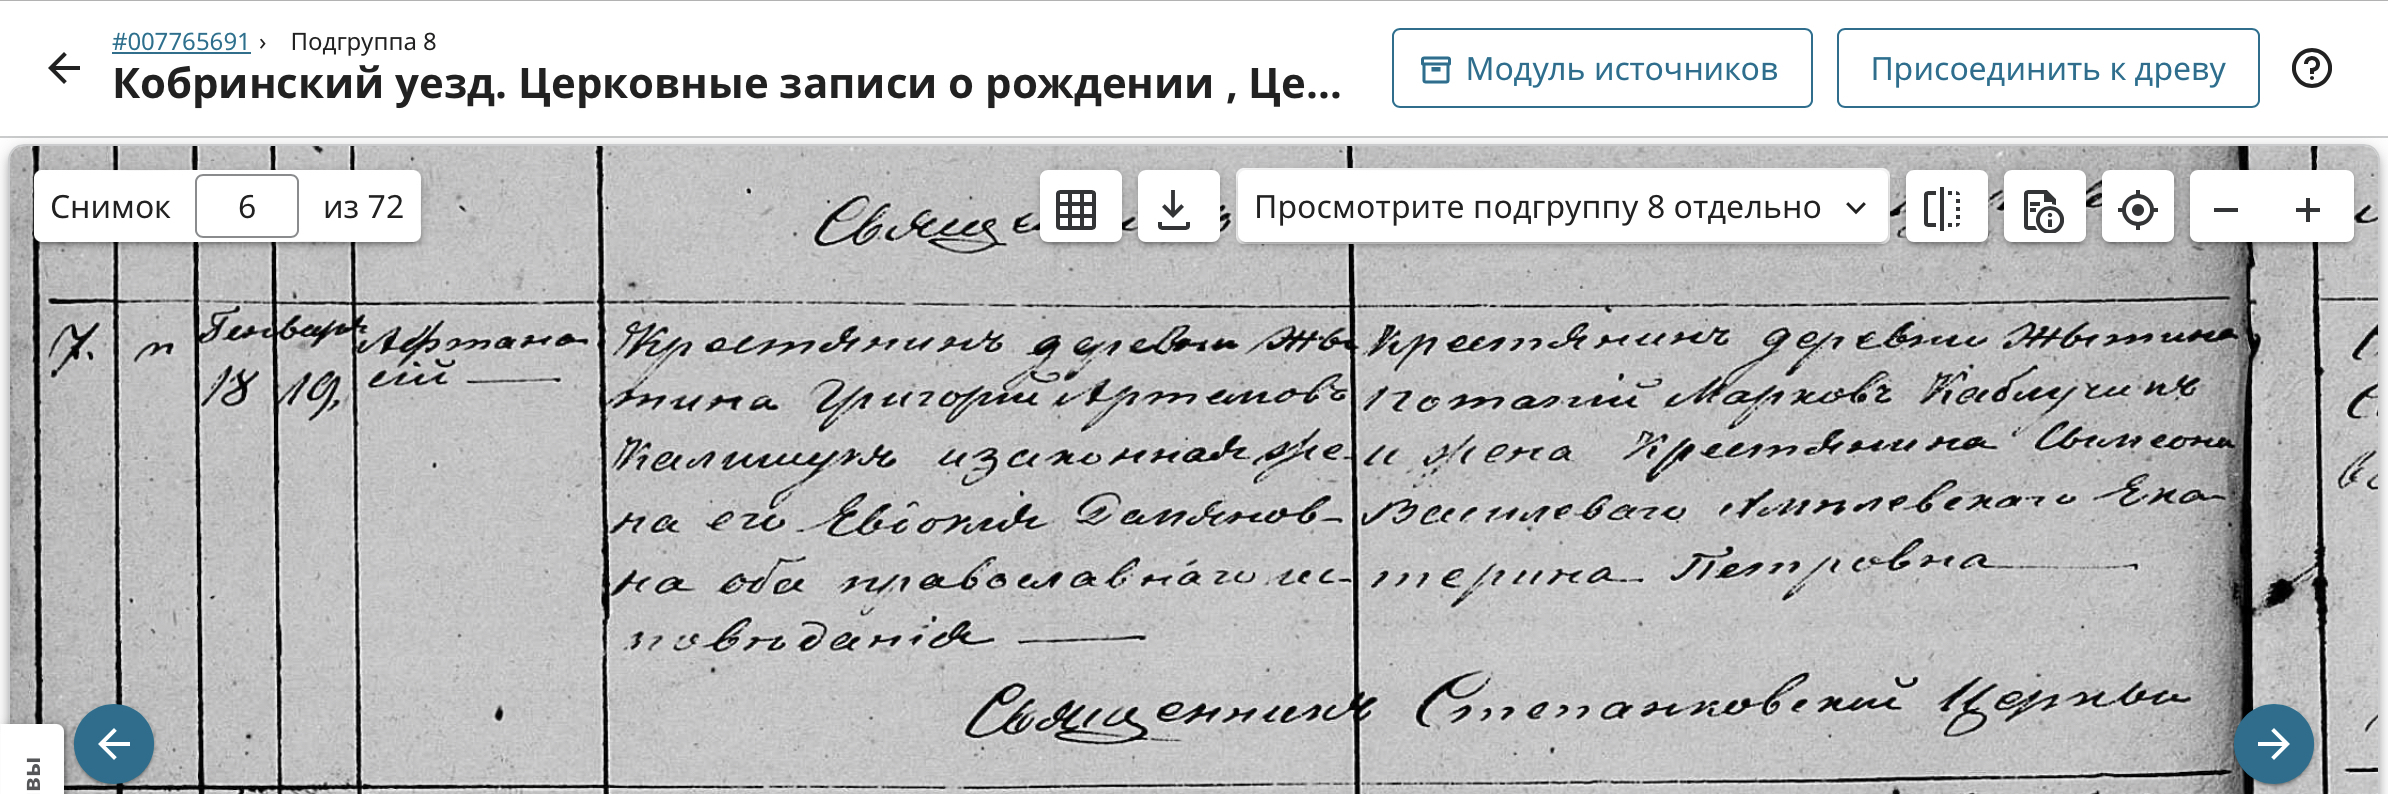 #007765691 › Подгруппа 8
Кобринский уезд. Церковные записи о рождении , Це...
Модуль источников
Присоединить к древу
Снимок 6 из 72
Просмотрите подгруппу 8 отдельно
Свяще
7. п Генваря Афтана-
18 19, сій
Крестянинъ деревни Жы-
тина Григорій Артемовъ
Калишукъ и законная же-
на его Евдокія Дамянов-
на оба православнаго ис-
повѣданія
Крестянинъ деревни Жытина
Потапій Марковъ Каблучикъ
и жена Крестянина Симеона
Василеваго Ека-
терина Петровна
Священникъ Степанковскій Церкви
вы